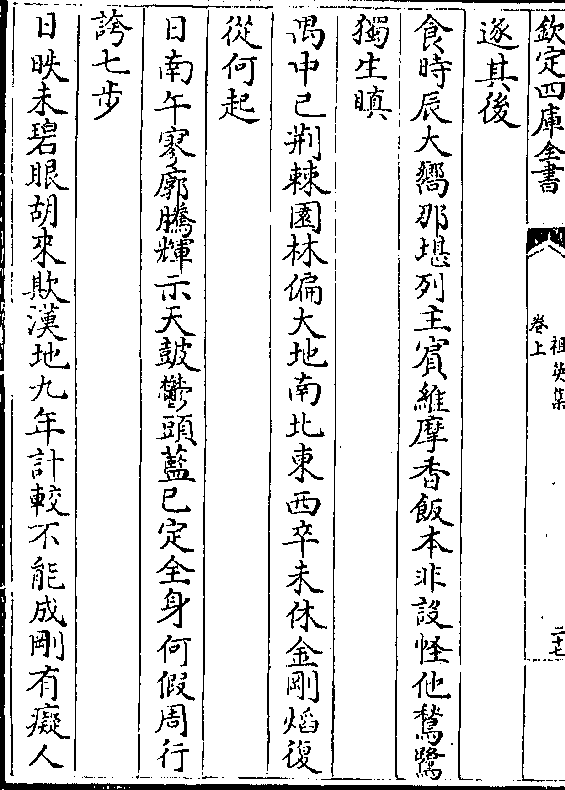 欽定四庫全書
祖英集
卷上
二十七
逐其後
食時辰大嚮那堪列主賓維摩香飯本非設怪他鶖鷺
獨生瞋
禺中巳荆棘園林徧大地南北東西卒未休金剛熖復
從何起
日南午寥廓騰輝示天鼓鬱頭藍已定全身何假周行
誇七步
日昳未碧眼胡來欺漢地九年計較不能成剛有癡人